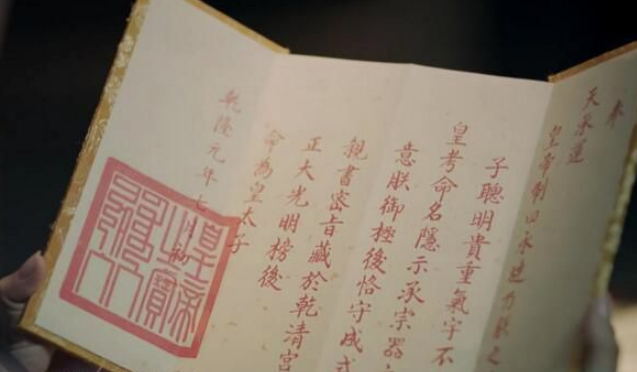 奉
天承運
皇帝制曰永乃朕之
子聰明貴重氣宇不
皇考命名隱示承宗器
意朕御極後恪守成式
親書密旨藏於乾清宮
正大光明榜後
命為皇太子
乾隆元年七月初
皇帝之寶